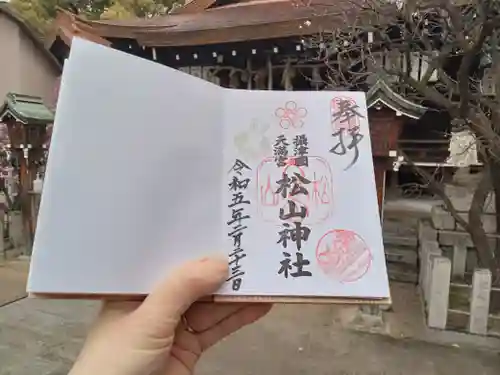 奉拝
摂津國
天満宮
松山神社
令和五年二月二十三日